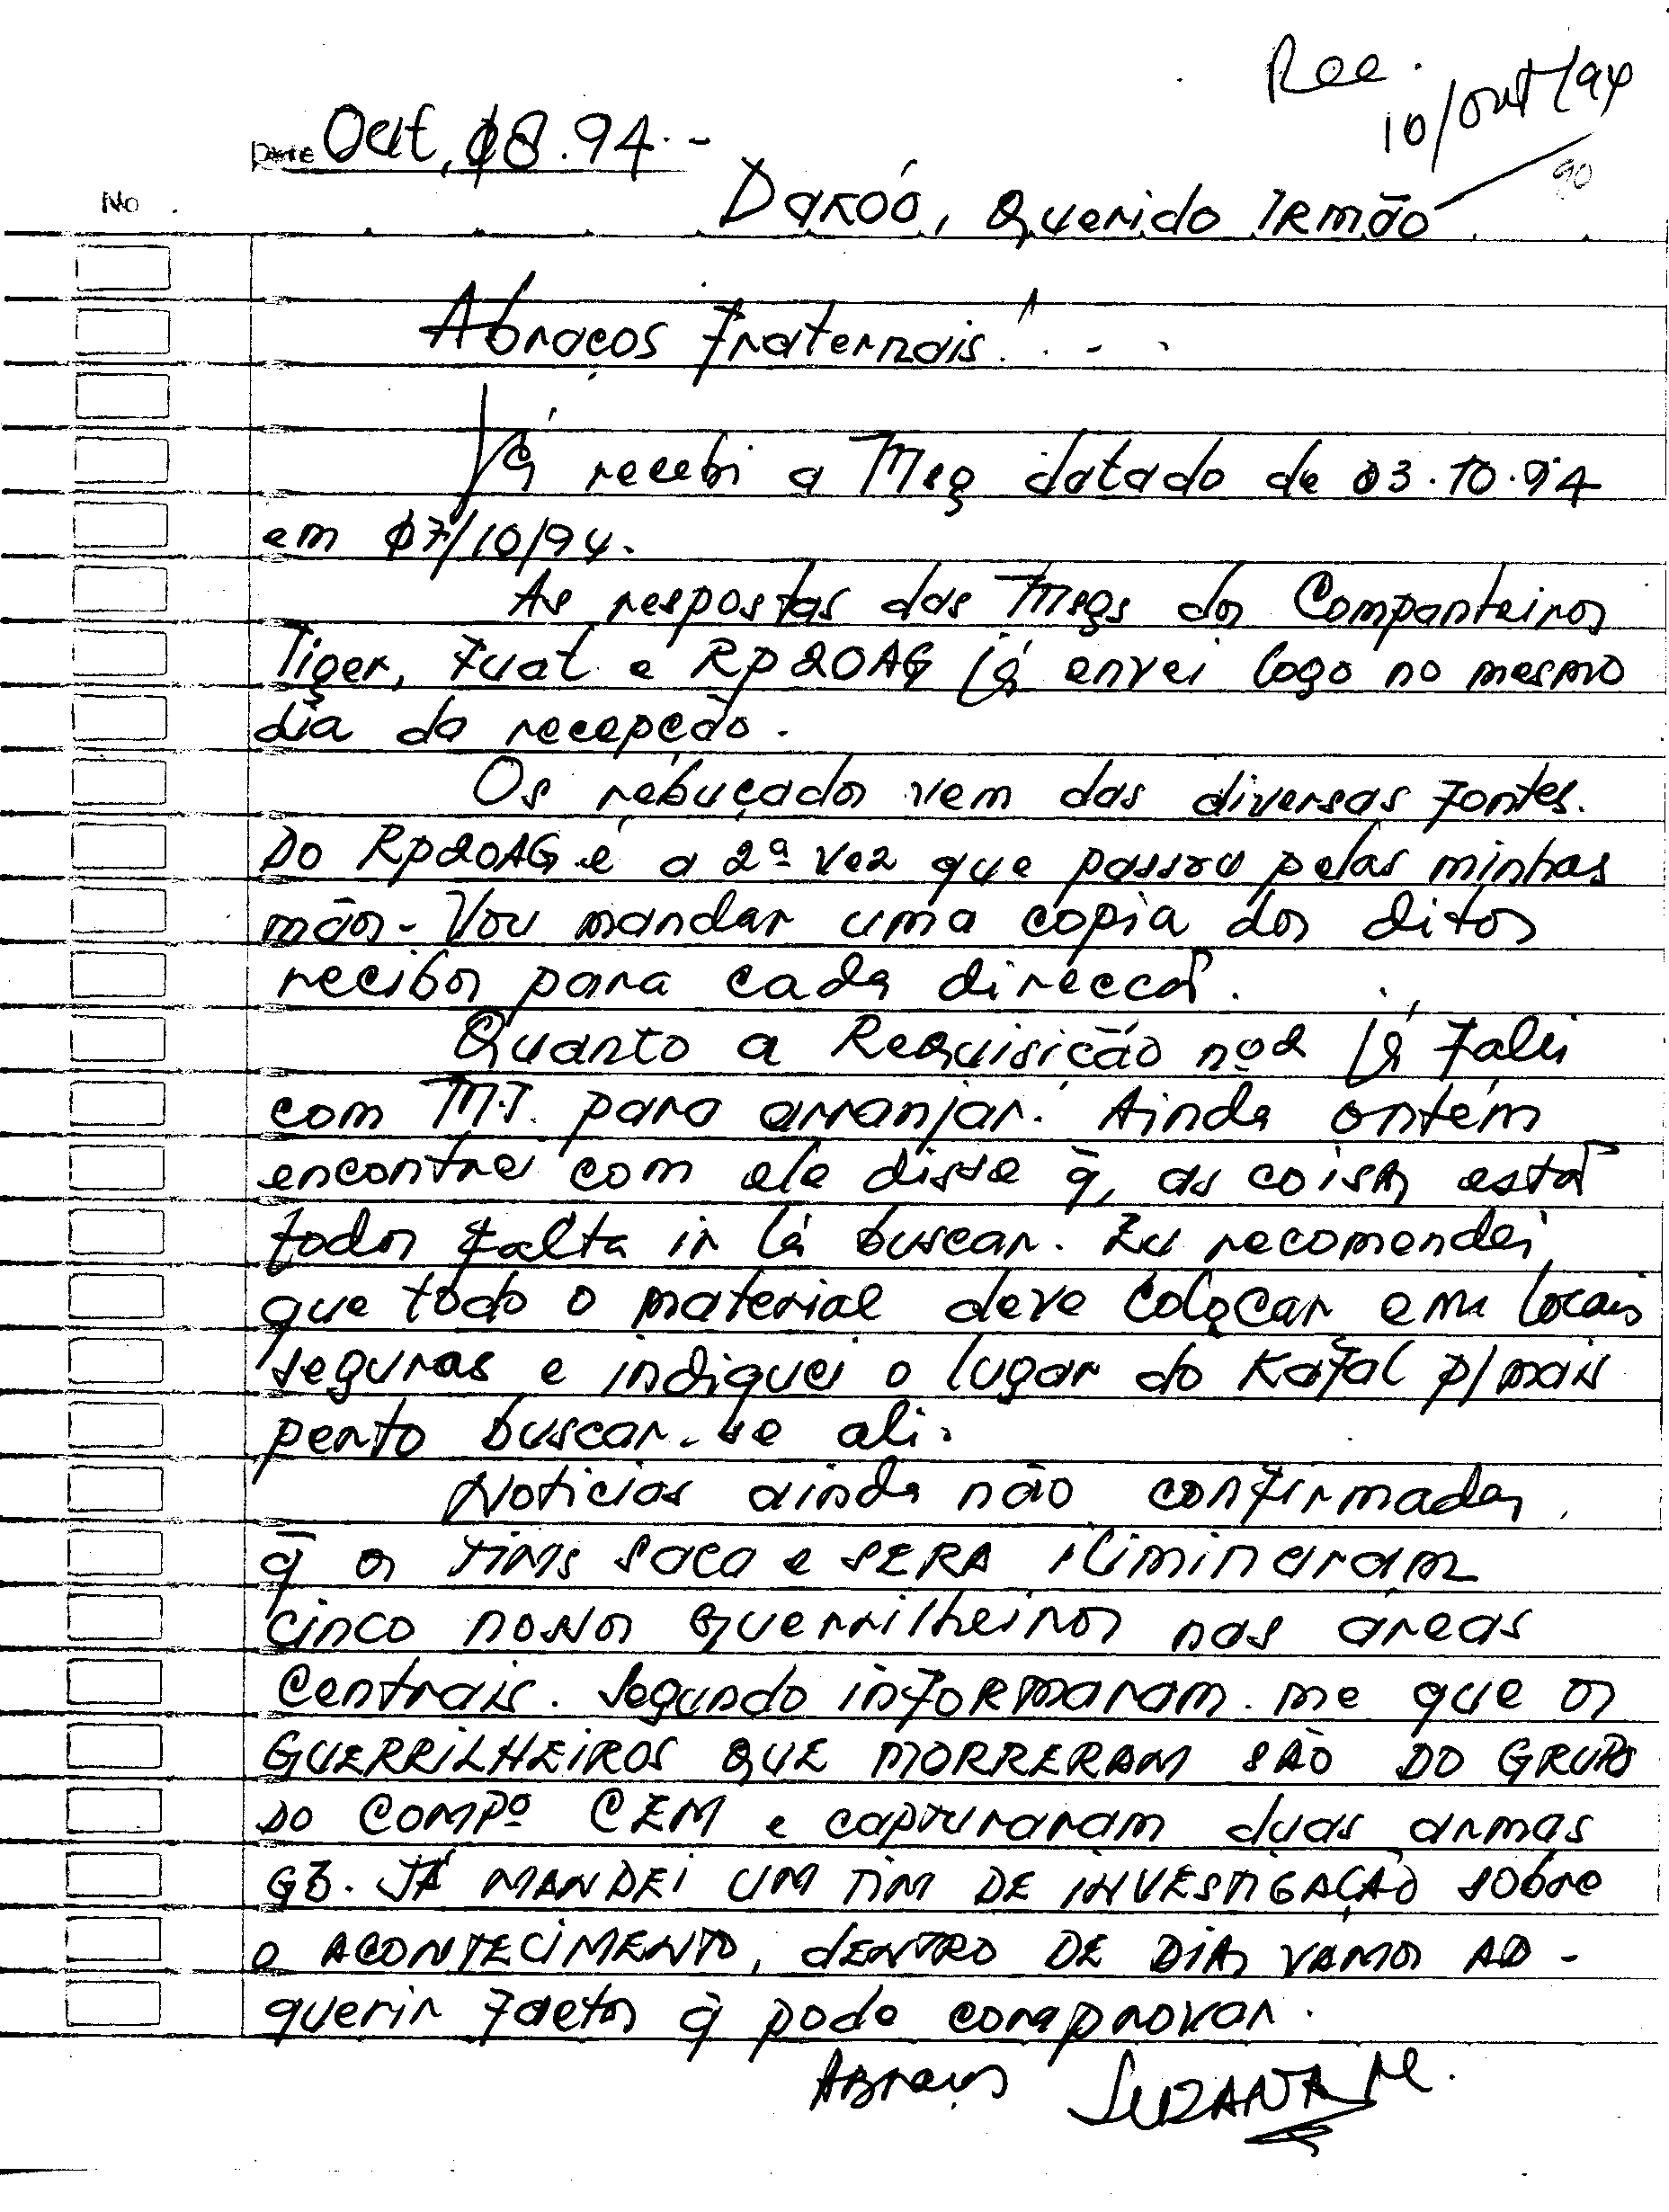 Rec.
10/Out/94
90
Date Out, 08.94.-
No.
Daroó, Querido Irmão
Abraços Fraternais! . - .
Já recebi a Msg datado de 03.10.94
em 07/10/94.
As respostas das Msgs dos Companheiros
Tiger, Fuat e RP20AG já envei logo no mesmo
dia da recepção.
Os rebuçados vem das diversas fontes.
Do RP20AG é a 2ª vez que passou pelas minhas
mãos - Vou mandar uma copia dos ditos
recibos para cada direccã.
Quanto a Requisição nº2 já falei
com M.J. para arranjar. Ainda ontém
encontrei com ele disse q̃, as coisas estã
todos falta ir lá buscar. Eu recomendei
que todo o material deve colocar em locais
seguras e indiquei o lugar do Kafal p/mais
perto buscar-se ali.
Noticias ainda não confirmadas
q̃ os TIMS saca e SERA iliminaram
cinco nossos guerrilheiros nas áreas
Centrais. Segundo informaram-me que os
GUERRILHEIROS QUE MORRERAM SÃO DO GRUPO
DO COMPº CEM e capturaram duas armas
G3. JÁ MANDEI UM TIM DE INVESTIGAÇÃO sobre
o ACONTECIMENTO, dENTRO DE DIAS VAMOS AD-
querir factos q̃ pode comprovar.
Abraços SURANA M.